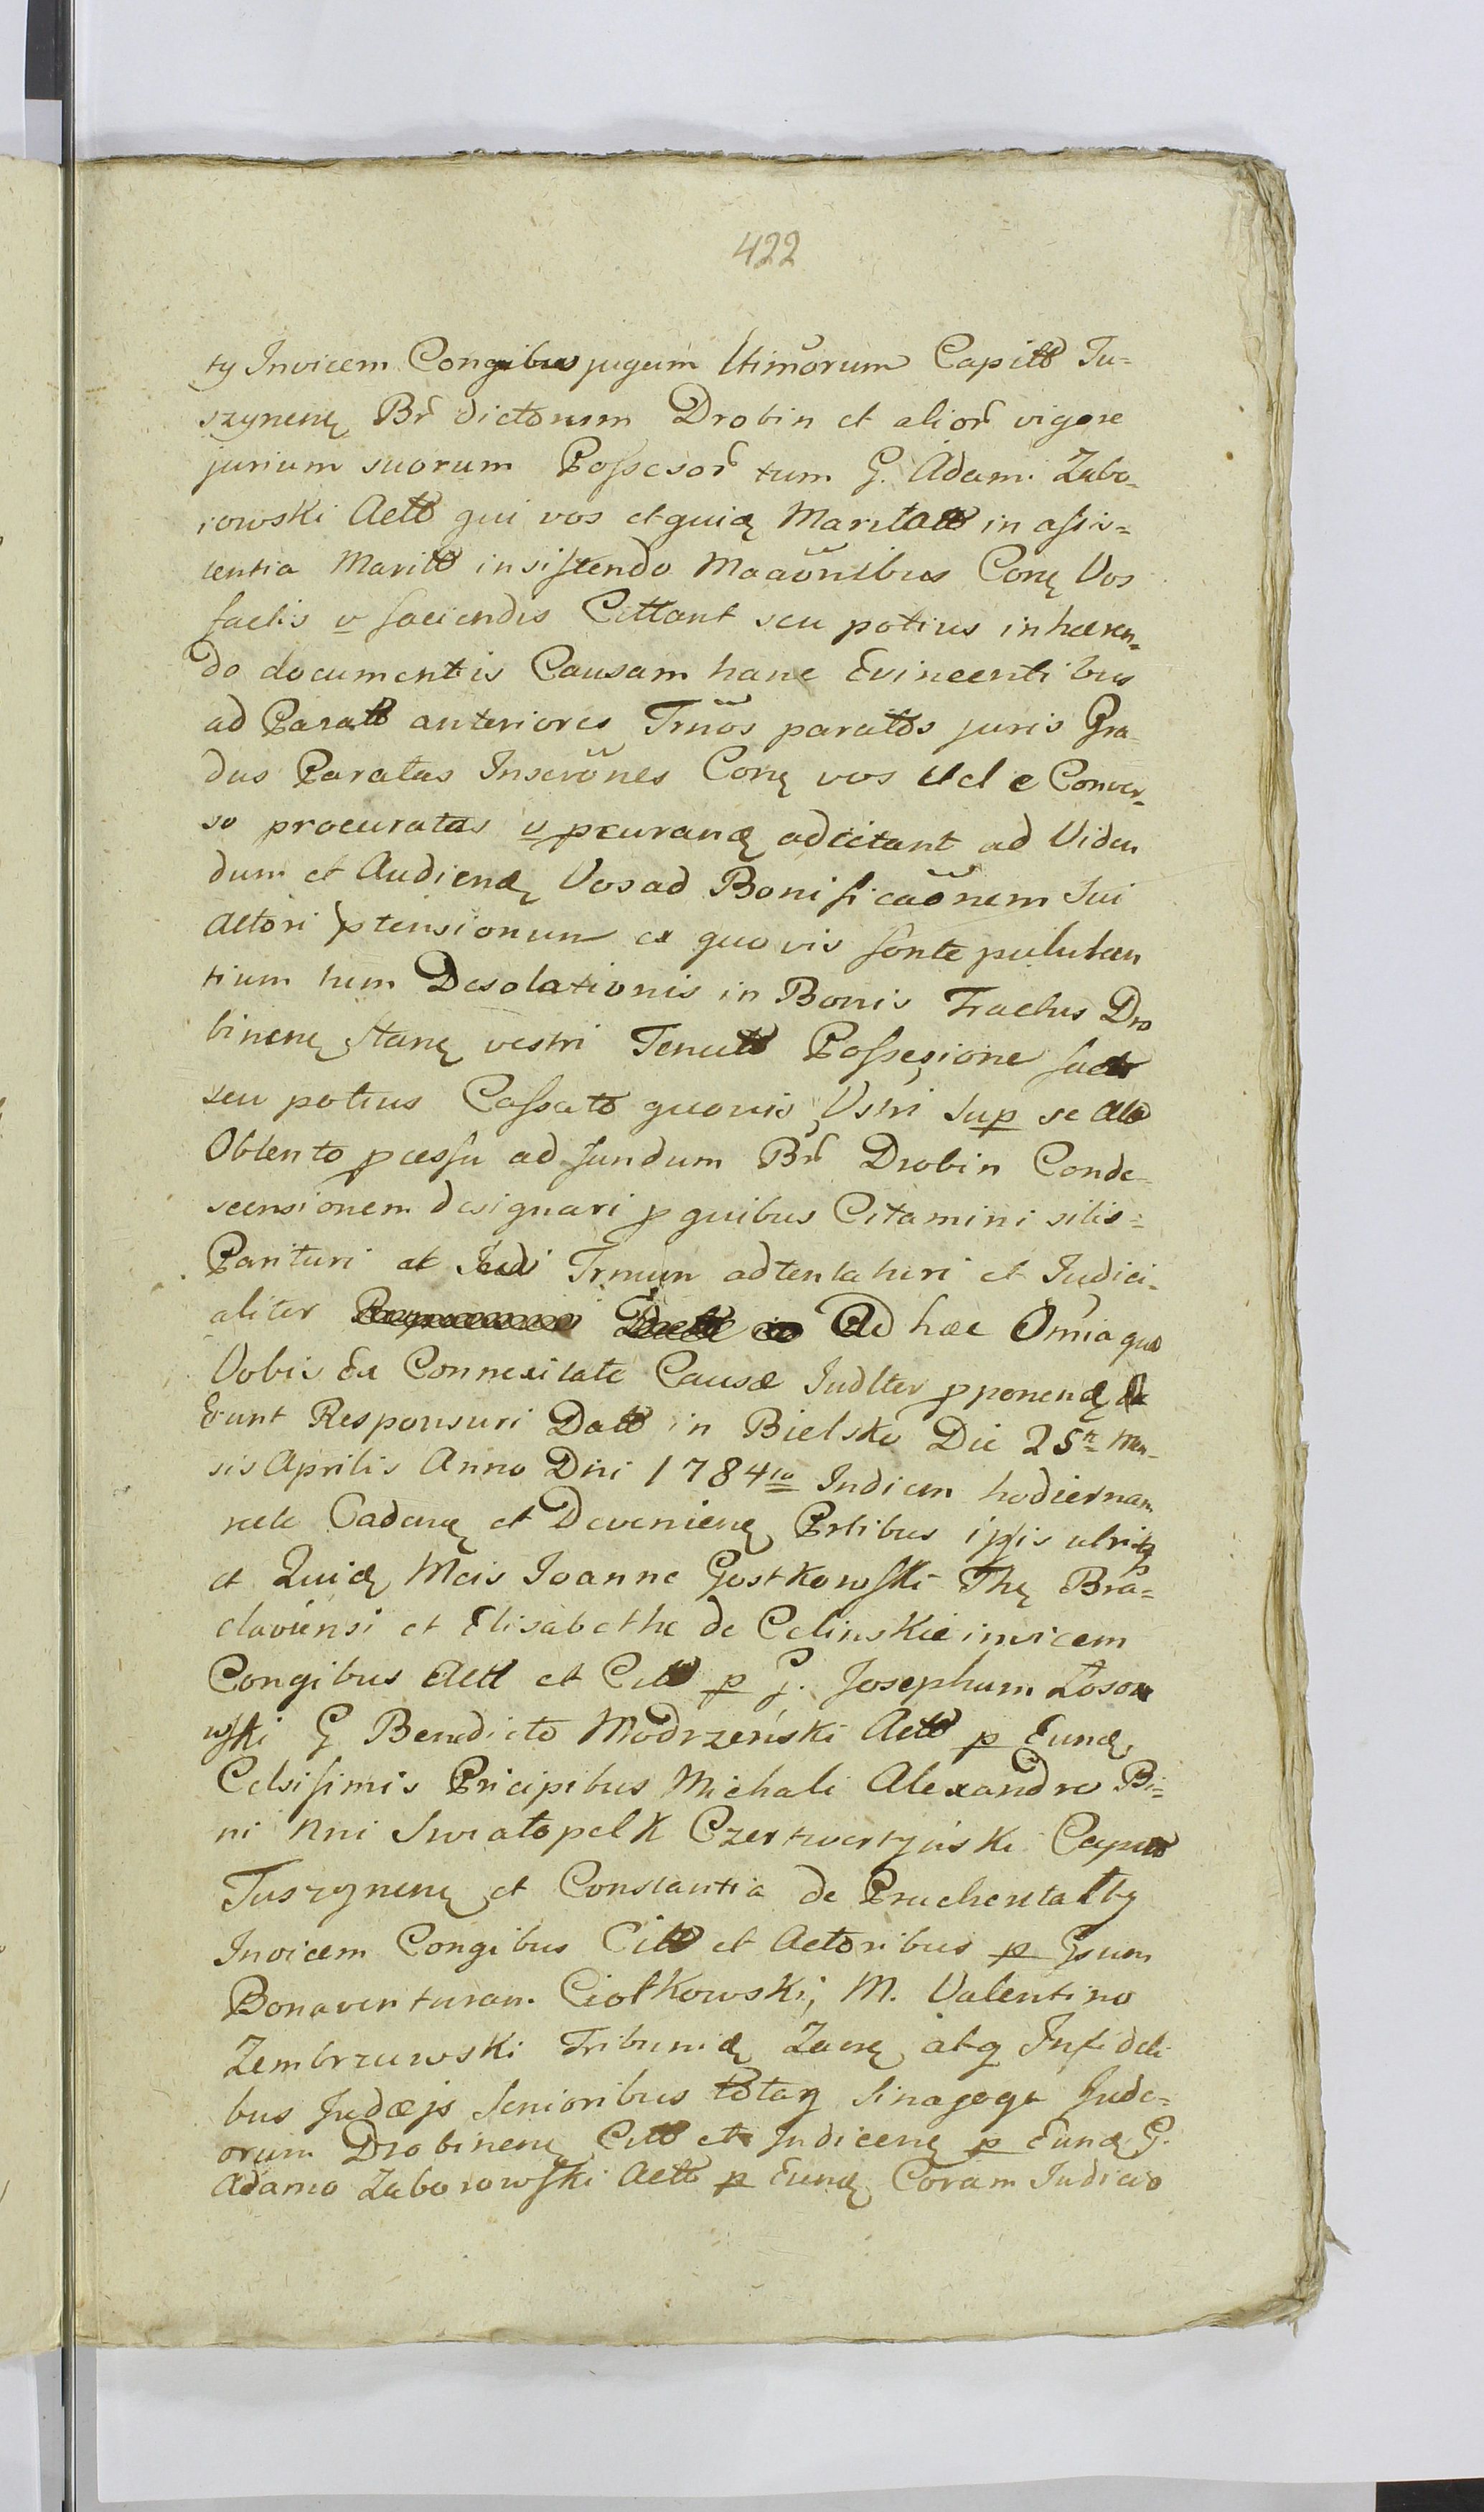 422
ty Invicem Congibus jugum ltimorum Capitt Tu-
szynenę Br̃ dictorum Drobin et alior̃ vigore
jurium suorum Possesor̃ tum G. Adam. Zabo-
rowski Actt qui vos et quidę Maritatt in assis-
tentia Maritt insistendo Maaõnibus Conę Vos
factis v faciendis Cittant seu potius inhæren-
do documentis Causam hanc Evincentibus
ad Paratt anteriores Trm̃os paratos juris Gra-
dus Paratas Inscrõnes Conę vos Vel e Conver-
so procuratas v pcurandę adcitant ad Viden
dum et Audiendę Vos ad Bonificaõnem Sui
Actori ptensionum ex quovis fonte pullulan
tium tum Desolationis in Bonis Tractus Dro
binenę stanę vestri Tenutt Possesione fact
seu potius Cassato quovis Vstri sup se
Obtento pcessu ad fundum Br̃ Drobin Conde-
scensionem designari p quibus Citamini sitis
Parituri et Trmum adtentaturi et Judici-
aliter Ad hæc Omnia quæ
Vobis Ex Connexitate Causæ Judlter pponendę
Erunt Responsuri Datt in Bielsko Die 25ta Men-
sis Aprilis Anno Dni 1784to Indicen hodiernam
recte Cadenę et Devenienę Prtibus ipsis utrisq
et Quidę Mcis Joanne Gostkowski Thę Bra-
claviensi et Elisabethe de Celinskie invicem
Congibus Actt et Citt p G. Josephum Łoson
wski G Benedicto Modrzeński Actt p Eundę
Celsisimis Pricipibus Michali Alexandro Bi-
ni Nni Swiatopelk Czertwertyński Capitt
Tuszynenę et Constantia de Pruchenta lty
Invicem Congibus Citt et Actoribus p Gsum
Bonaventuram Ciołkowski; M. Valentino
Zembrzuwski Tribunidę Zacnę atq Infideli
bus Judæjs Senioribus totaq Sinagoga Jude-
orum Drobinenę Citt et Indicenę p Eundę G.
Adamo Zaborowski Actt p Eundę Coram Judicio